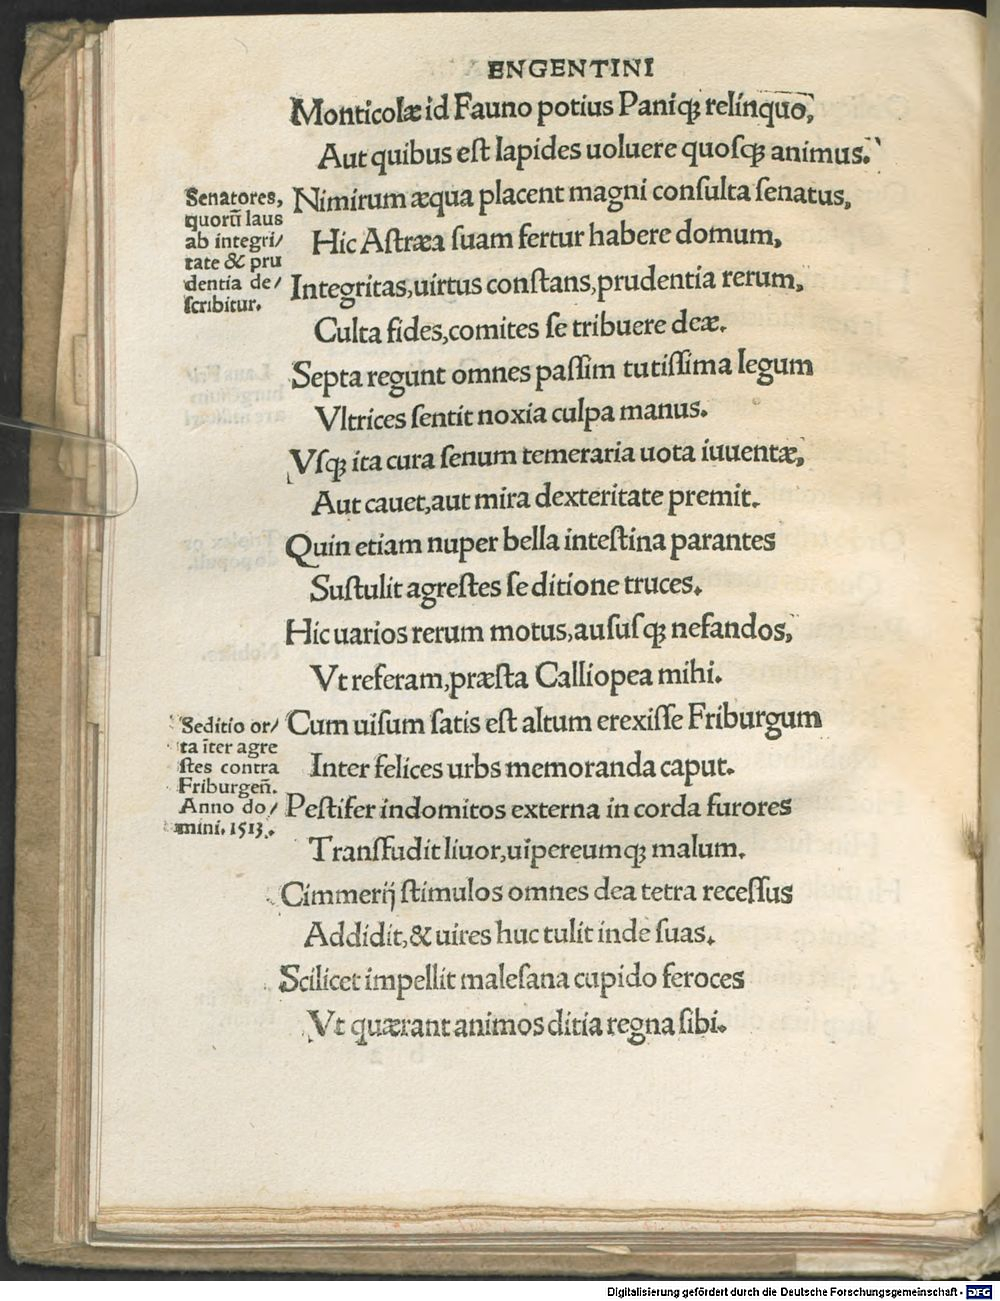 ENGENTINI
Monticolæ id Fauno potius Paniqꝫ relinquo,
Aut quibus eſt lapides uoluere quoſqꝫ animus.
Senatores,
quorū laus
ab integri/
tate & pru
dentia de/
ſcribitur.
Nimirum æqua placent magni conſulta ſenatus,
Hic Aſtræa ſuam fertur habere domum,
Integritas, uirtus conſtans, prudentia rerum,
Culta fides, comites ſe tribuere deæ.
Septa regunt omnes paſſim tutiſſima legum
Vltrices ſentit noxia culpa manus.
Vſqꝫ ita cura ſenum temeraria uota iuuentæ,
Aut cauet, aut mira dexteritate premit.
Quin etiam nuper bella inteſtina parantes
Suſtulit agreſtes ſeditione truces.
Hic uarios rerum motus, auſuſqꝫ nefandos,
Vt referam, præſta Calliopea mihi.
Seditio or/
ta īter agre
ſtes contra
Friburgeñ.
Anno do/
mini. 1513.
Cum uiſum ſatis eſt altum erexiſſe Friburgum
Inter felices urbs memoranda caput.
Peſtifer indomitos externa in corda furores
Tranſfudit liuor, uipereumqꝫ malum.
Cimmerij ſtimulos omnes dea tetra receſſus
Addidit, & uires huc tulit inde ſuas.
Scilicet impellit maleſana cupido feroces
Vt quærant animos ditia regna ſibi.
Digitalisierung gefördert durch die Deutsche Forschungsgemeinschaft - DFG